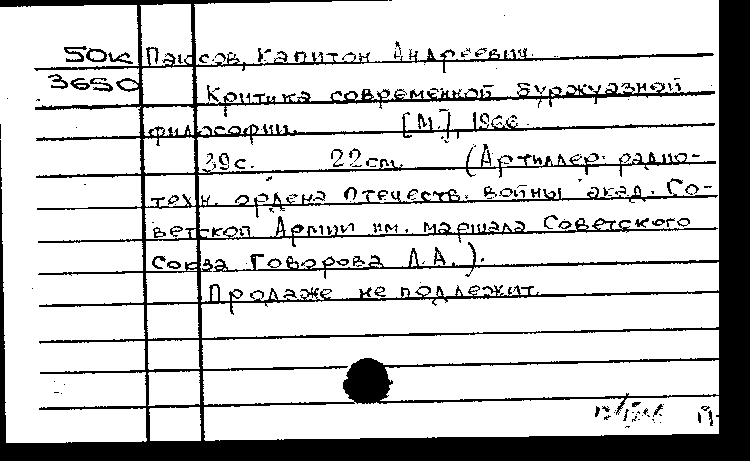 50к Паюсов, Капитон Андреевич.
3650
Критика современной буржуазной
философии. [М.], 1966
39с. 22см. (Артиллер. радио-
техн. ордена Отечеств. войны акад. Со-
ветской Армии им. маршала Советского
Союза Говорова Л.А.).
Продаже не подлежит.